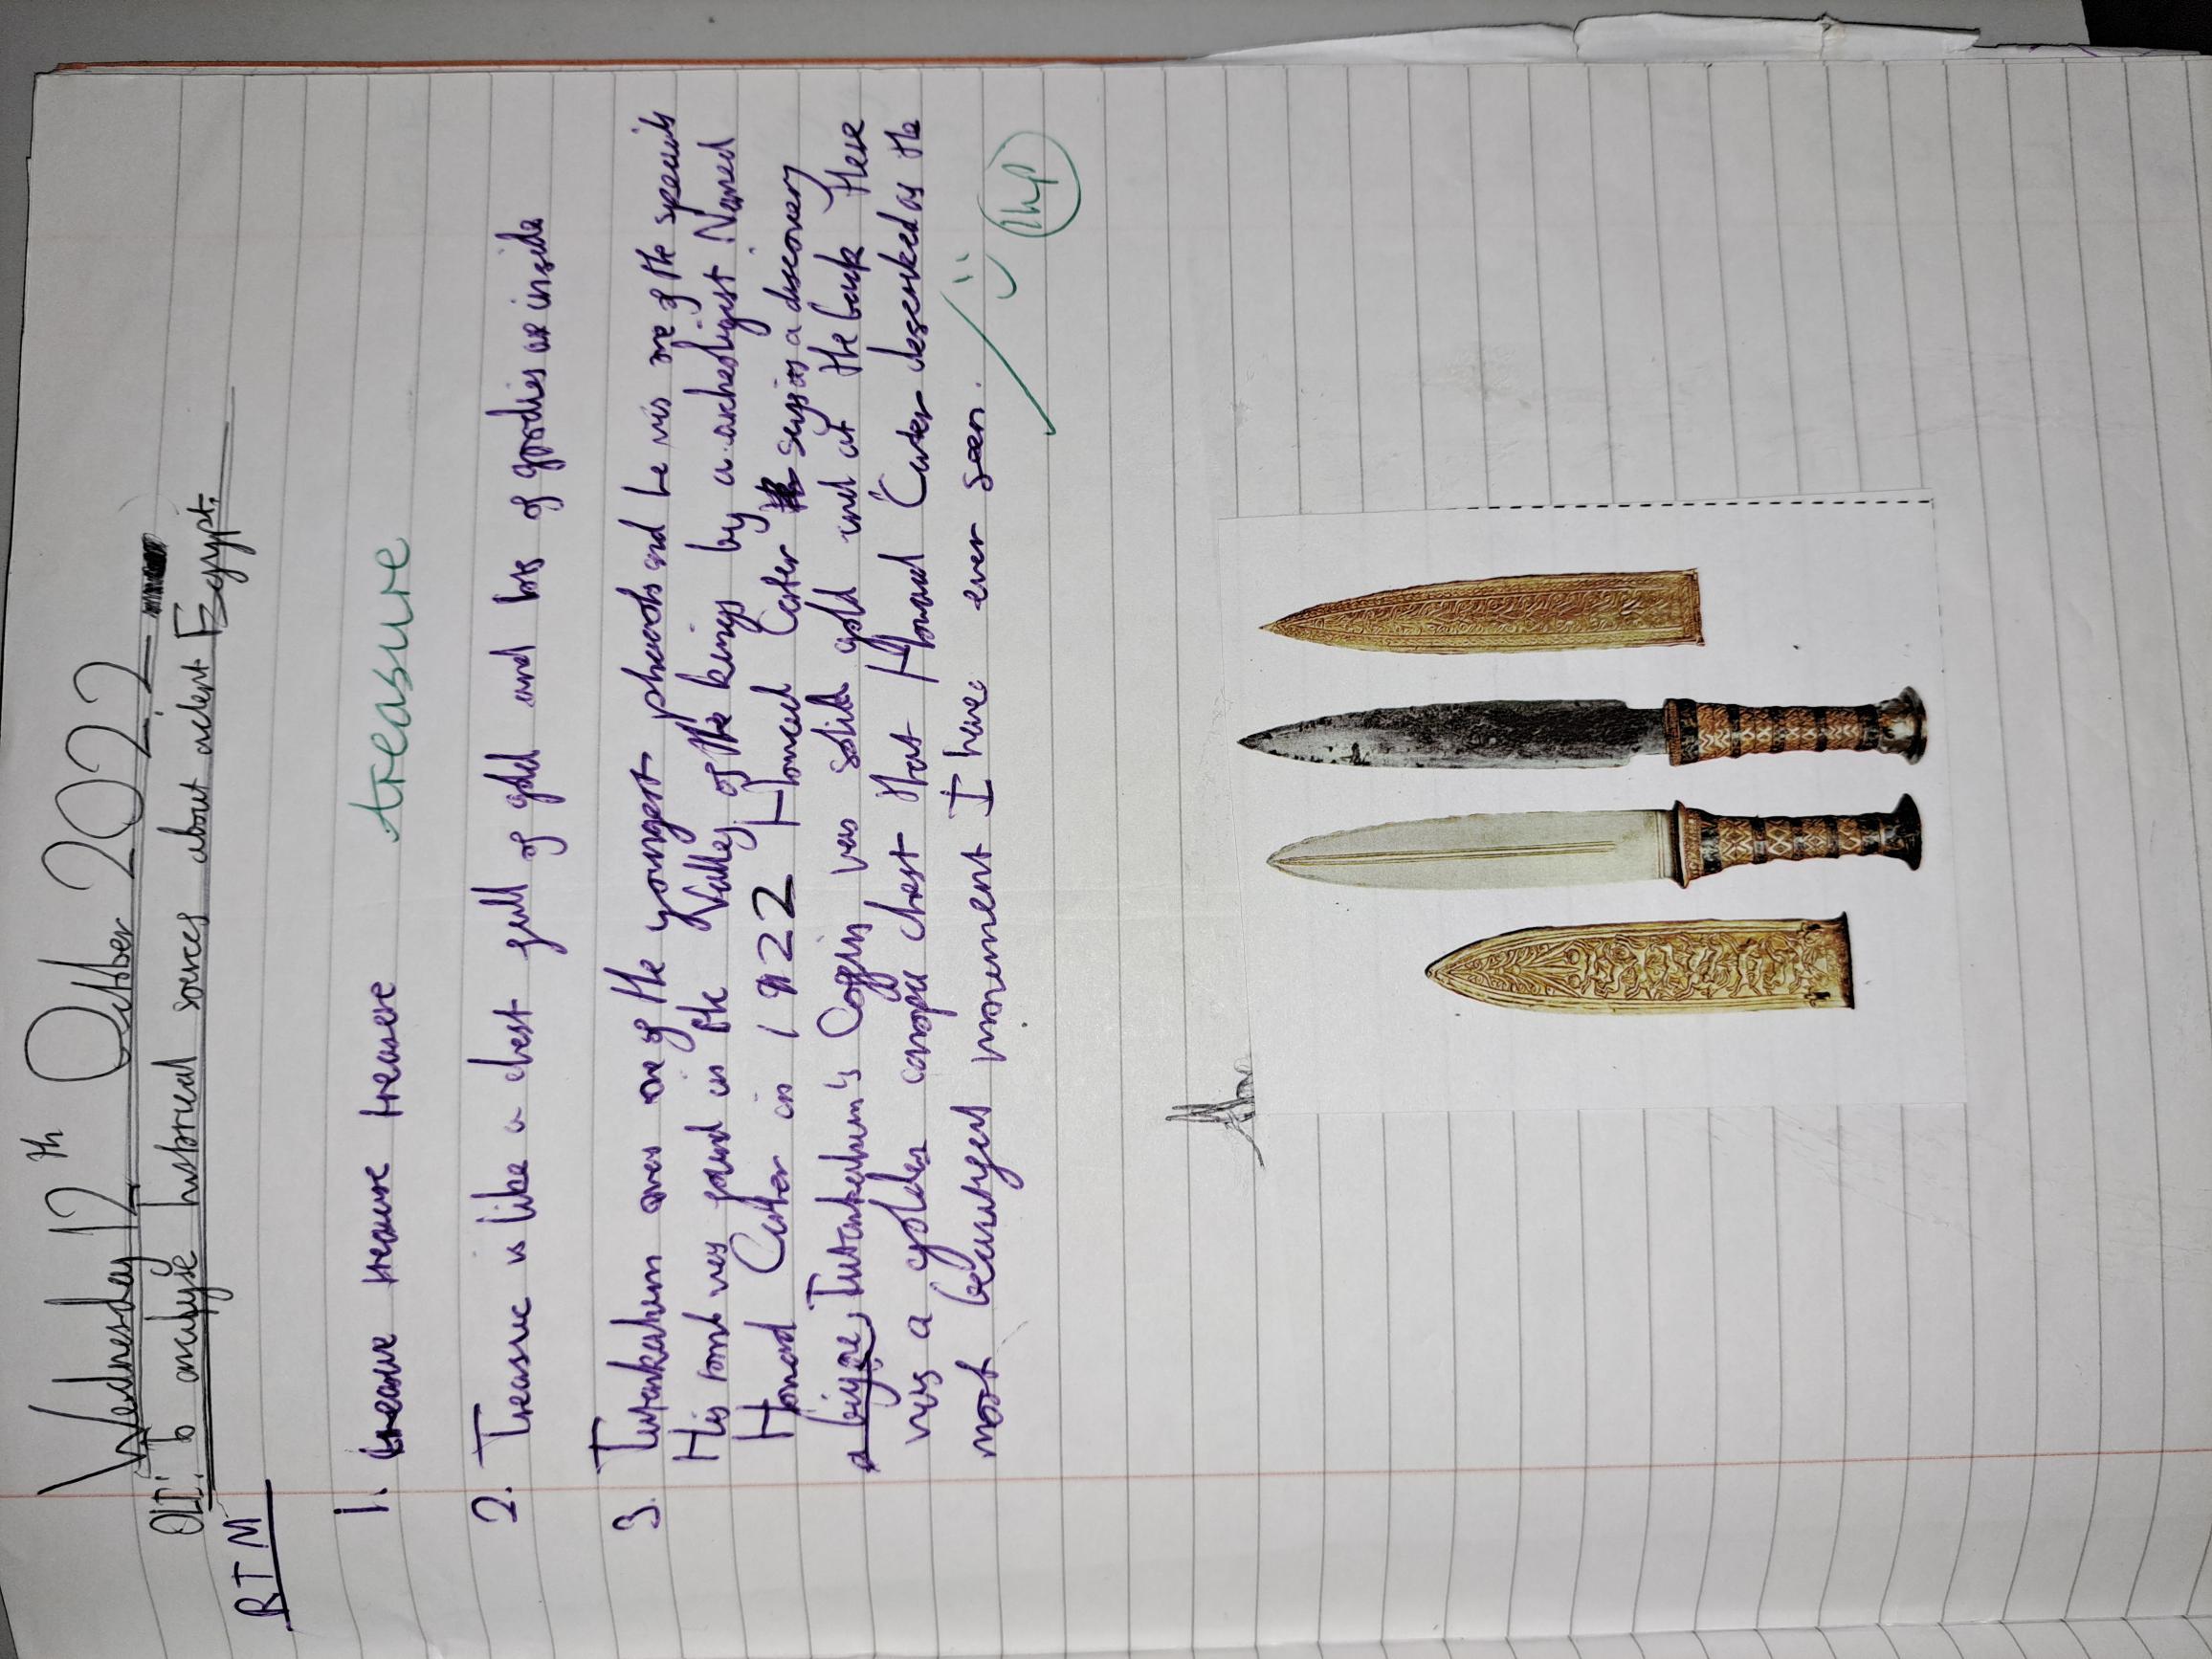 Wednesday 12th October 2022
OLI: To analyse historical sources about acient Egypt.
RTM
1. treasure treasure treasure treasure
2. Treasure is like a chest full of gold and lots of goodies inside
3. Tutankahum was one of the youngest pharaohs and he was one of the
His tomb was found in the Valley of the kings by a archeoligist Named
Howard Carter in 1922 Howard Carter a discovery
Tutankahum's Coffin was solid gold and at the back there
was a golden canopic chest that Howard Carter described as the
most beautiful monument I have ever seen.
1hp